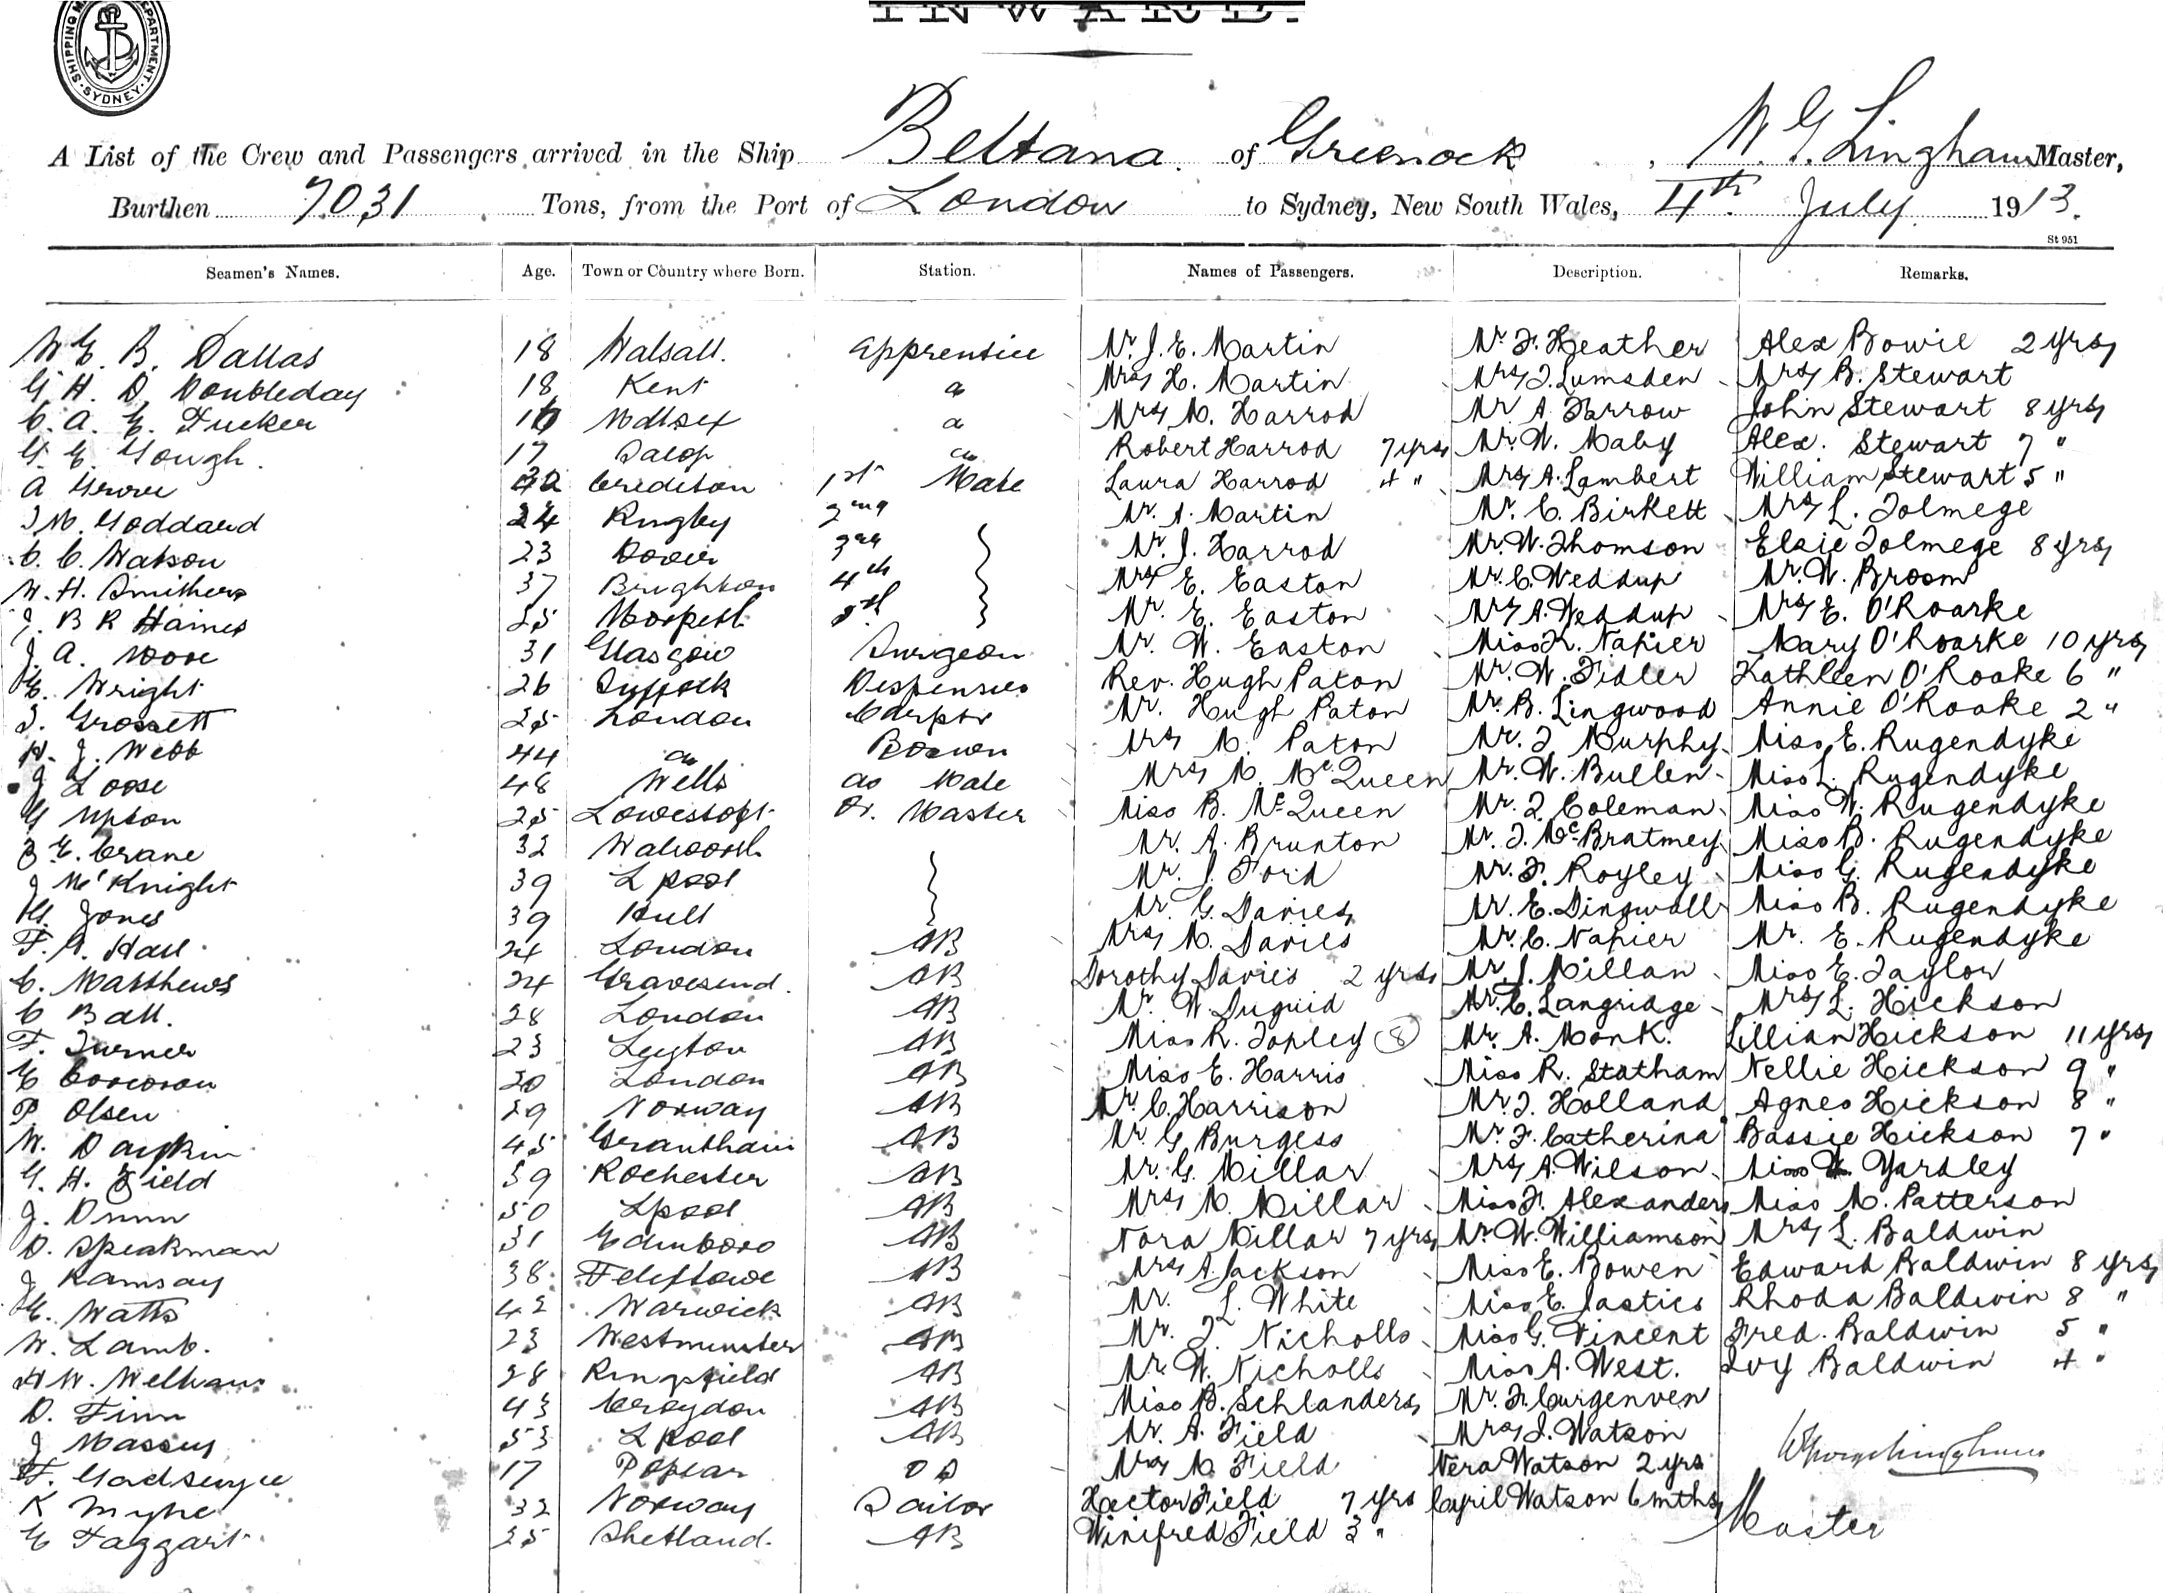 INWARD.
SHIPPING MASTER'S DEPARTMENT · SYDNEY ·
A List of the Crew and Passengers arrived in the Ship Beltana of Greenock, W G Lingham Master,
Burthen 7031 Tons, from the Port of London to Sydney, New South Wales, 4th July 1913.
St 951
Seamen's Names. Age. Town or Country where Born. Station. Names of Passengers. Description. Remarks.
W E. B. Dallas 18 Walsall. Apprentice Mr. J. E. Martin Mr F. Heather Alex Bowie 2 yrs
G. H. D. Doubleday 18 Kent Mrs H. Martin Mrs J. Lumsden Mrs B. Stewart
C. A. E. Tucker 16 Mdlsex Mrs M. Harrod Mr A. Farrow John Stewart 8 yrs
G. E. Gough. 17 Salop Robert Harrod 7 yrs Mr. W. Maby Alex. Stewart 7 "
A 32 Crediton 1st Mate Laura Harrod 4 " Mrs A. Lambert William Stewart 5 "
J M. Goddard 24 Rugby 2nd Mr. A. Martin Mr. C. Birkett Mrs L. Tolmege
C. C. Watson 23 Dover 3rd Mr. J. Harrod Mr. W. Thomson Elsie Tolmege 8 yrs
W. H. Smithers 37 Brighton 4th Mrs E. Easton Mr. C. Weddup Mr. W. Broom
J. B R Haines 25 Morpeth 5th Mr. E. Easton Mrs A. Weddup Mrs E. O'Roarke
J. A. Moore 31 Glasgow Surgeon Mr. W. Easton Miss K. Napier Mary O'Roarke 10 yrs
E. Wright 26 Suffolk Dispenser Rev. Hugh Paton Mr. W. Fidler Kathleen O'Roake 6 "
J. Grossett 25 London Carptr Mr. Hugh Paton Mr. B. Lingwood Annie O'Roake 2 "
H. J. Webb 44 do Bosun Mrs M. Paton Mr. J Murphy Miss E. Rugendyke
J Loose 48 Wells do Mate Mrs M. McQueen Mr. W. Bullen Miss L. Rugendyke
G Upton 25 Lowestoft Qr. Master Miss B. McQueen Mr. J. Coleman Miss W. Rugendyke
B E. Crane 32 Walworth Mr. A. Brunton Mr. J. McBratmey Miss B. Rugendyke
J McKnight 39 Lpool Mr. J. Ford Mr. F. Royley Miss G. Rugendyke
H. Jones 39 Hull Mr. G. Davies Mr. E. Dingwall Miss B. Rugendyke
F. A. Hall 24 London AB Mrs M. Davies Mr. C. Napier Mr. E. Rugendyke
C. Matthews 24 Gravesend. AB Dorothy Davies 2 yrs Mr J. Millan Miss E. Taylor
C Ball. 28 London AB Mr. W. Duguid Mr. C. Langridge Mrs L. Hickson
F. Turner 23 Leyton AB Miss R. Topley 8 Mr. A. Monk. Lillian Hickson 11 yrs
E Corcoran 20 London AB Miss E. Harris Miss R. Statham Nellie Hickson 9 "
P Olsen 29 Norway AB Mr. C. Harrison Mr. J. Holland Agnes Hickson 8 "
W. 45 Grantham AB Mr. G. Burgess Mr. F. Catherina Bassie Hickson 7 "
G. H. Field 59 Rochester AB Mr. G. Millar Mrs A. Wilson Miss Yardley
J. Dunn 50 Lpool AB Mrs M. Millar Miss F. Alexanders Miss M. Patterson
D. Speakman 31 Edinboro AB Nora Millar 7 yrs Mr. W. Williamson Mrs L. Baldwin
J Ramsay 38 AB Mrs A. Jackson Miss E. Bowen Edward Baldwin 8 yrs
E. Watts 42 Warwick AB Mr. L. White Miss E. Jastics Rhoda Baldwin 8 "
W. Lamb. 23 Westminster AB Mr. J. Nicholls Miss G. Vincent Fred. Baldwin 5 "
H W. Welham 28 Ringsfield AB Mr. W. Nicholls Miss A. West. Ivy Baldwin 4 "
D. Finn 43 Croydon AB Miss B. Schlanders Mr. F. Curgenven
J Massey 53 Lpool AB Mr. A. Field Mrs J. Watson
F. 17 Poplar OS Mrs M. Field Vera Watson 2 yrs
K Myhe 32 Norway Sailor Hector Field 7 yrs Capil Watson 6 mths
E Taggart 25 Shetland. AB Winifred Field 3 "
Master